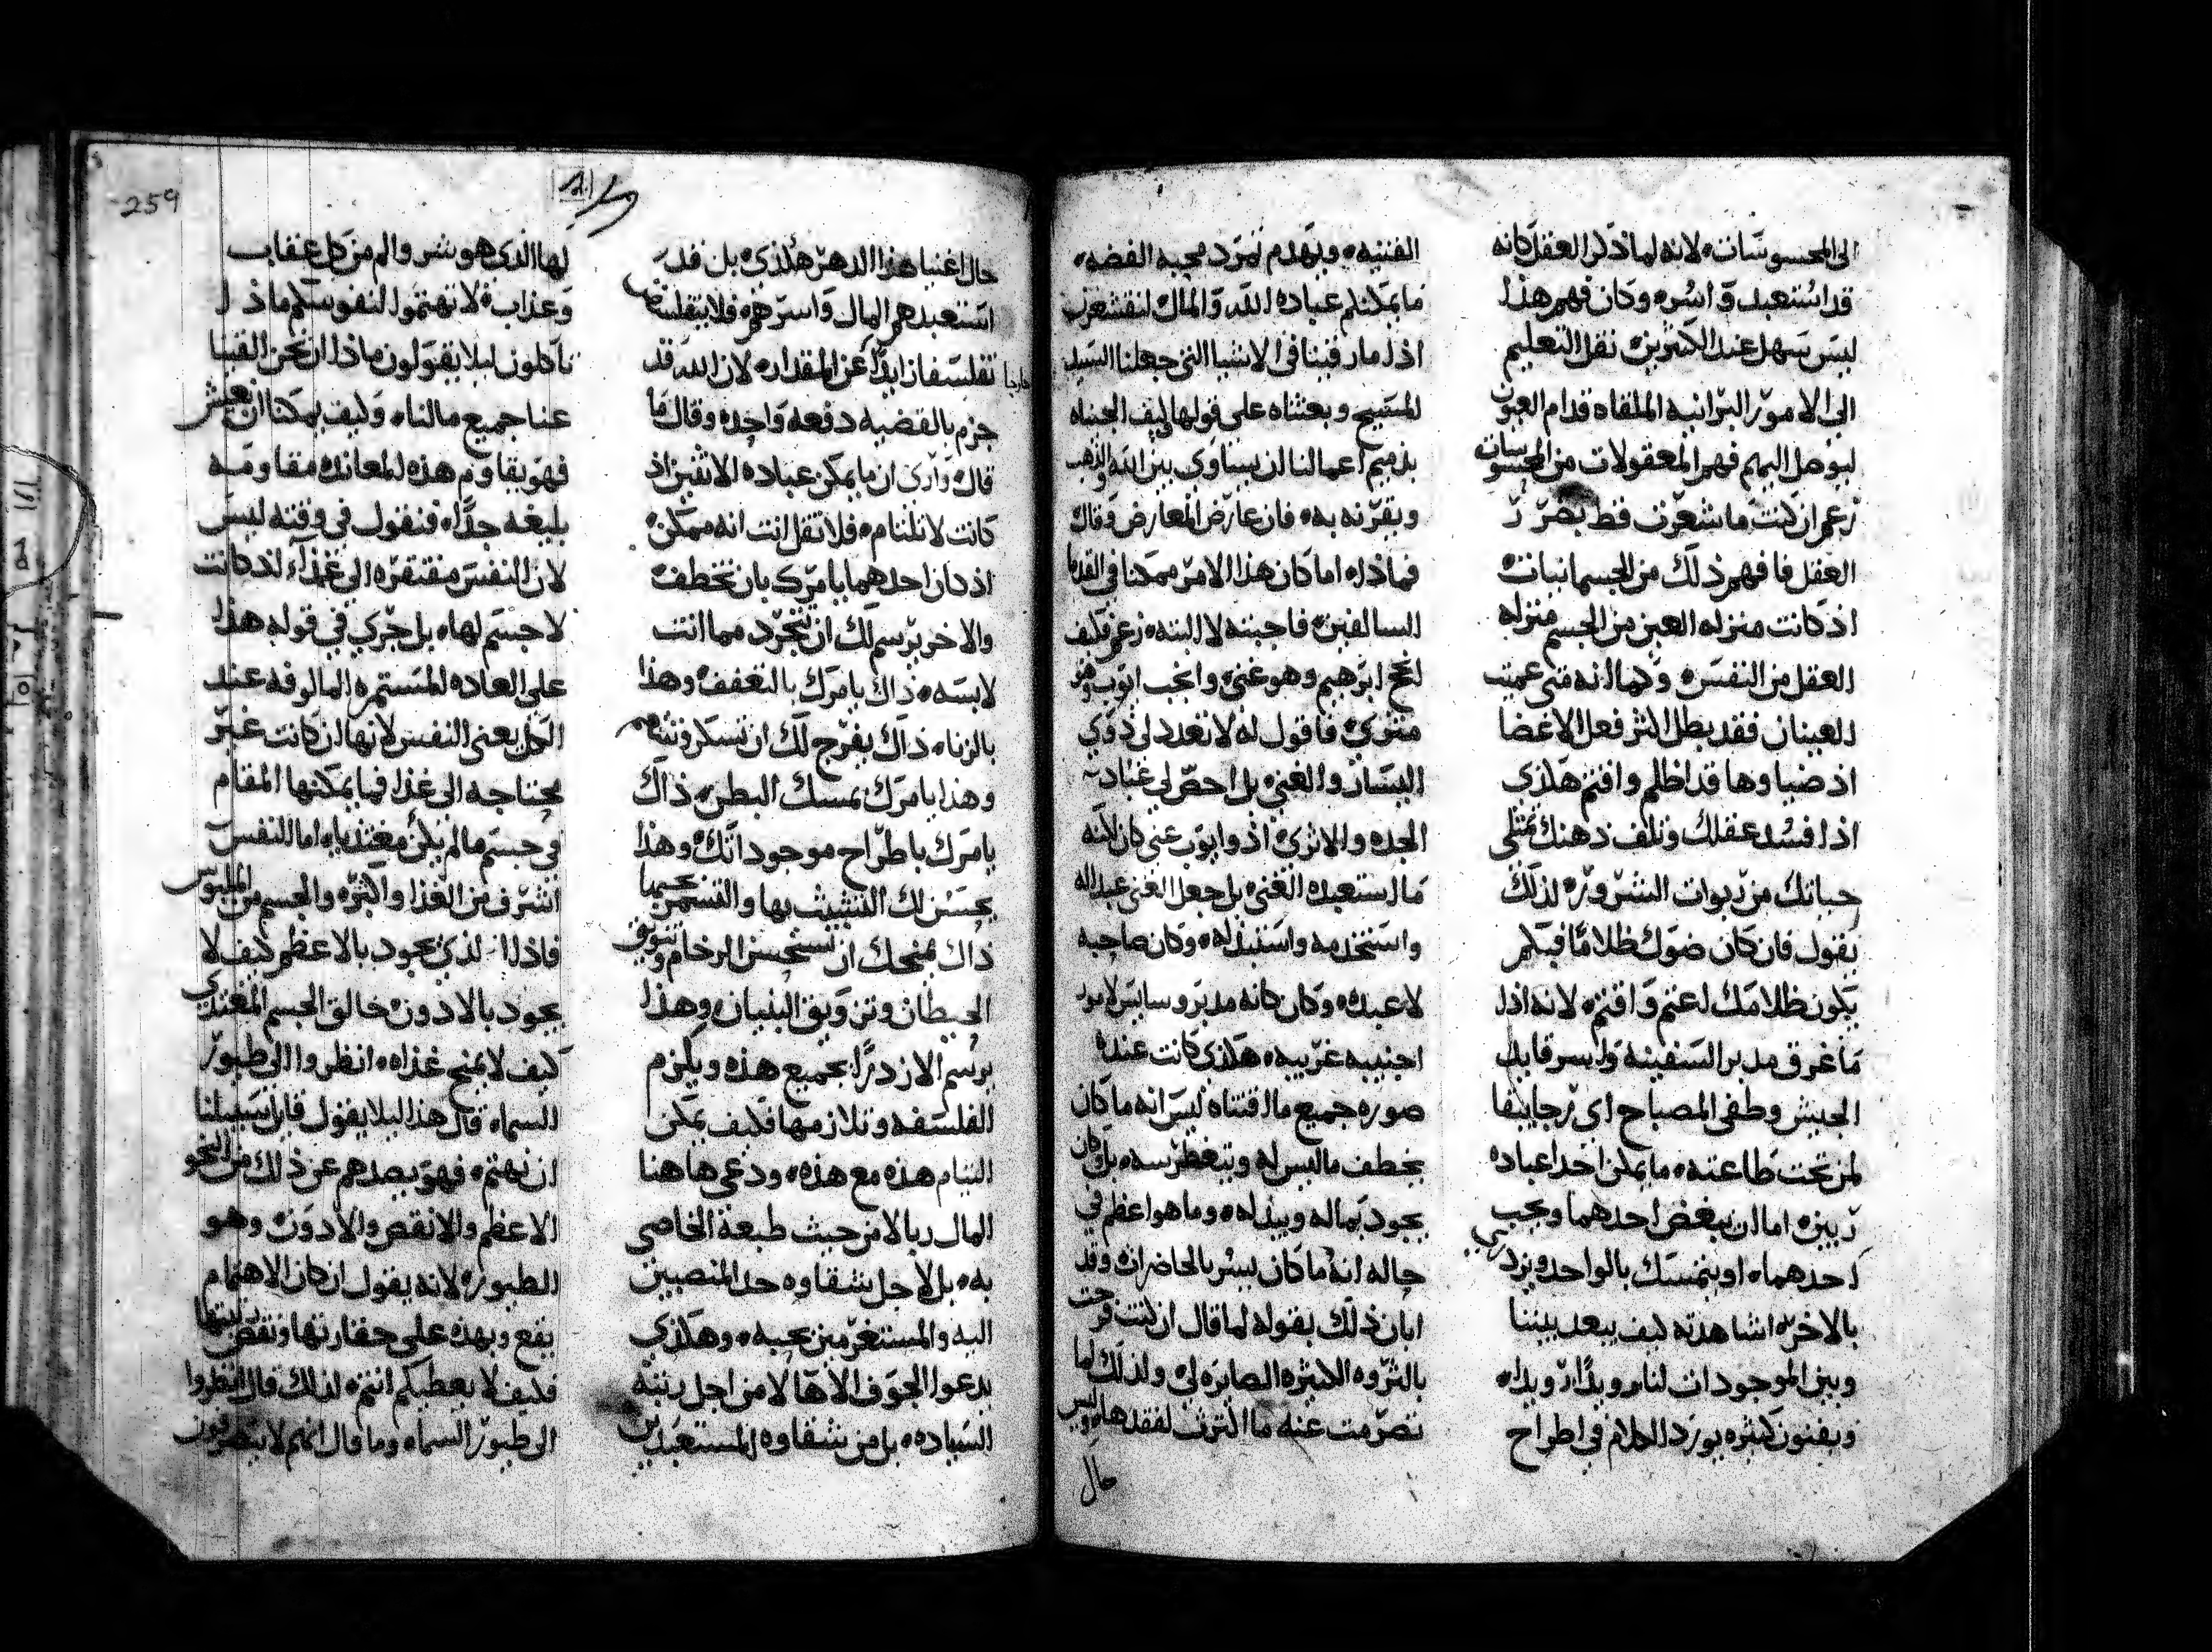 الى المحسوسات، لانه لما ذكر العقل كانه
قد استعبد واسر، وكان فهم هذا
ليس سهل عند الكثيرين، نقل التعليم
الى الامور البرانيه الملقاه قدام العيون
ليوصل اليهم فهم المعقولات من المحسوسات
زعم ان كنت ما شعرت قط بضرر
العقل فافهم ذلك من الجسمانيات
اذ كانت منزله العين من الجسم منزله
العقل من النفس، وكما انه متى عميت
العينان فقد بطل اكثر فعل الاعضا
اذ ضياوها قد اظلم واقتم هكذى
اذا فسد عقلك وتلف ذهنك تمتلى
حياتك من ربوات الشرور، لذلك
يقول فان كان ضوك ظلاما فبكم
يكون ظلامك لعتم واقتم، لانه اذا
ما غرق مدبر السفينه واسر قايد
الجيش وطفى المصباح اي رجا يبقا
لمن تحت طاعته، ما يمكن احدا عباده
ربين، اما ان يبغض احدهما ويحب
احدهما، او يتمسك بالواحد ويزدري
بالاخر، اشاهدته كيف يبعد بيننا
وبين الموجودات لنا، رويدا رويدا،
وبفنون كثيره يورد الكلام في اطراح
القنيه، ويهدم تمرد محبه الفضه،
ما يمكنكم عباده الله والمال لنقشعرن
اذا ما رقينا في الاشيا التي جعلنا السيد
المسيح وبعثناه على قولها كيف الجناه
بذميم اعمالنا ان يساوي بين الله والذهب
ويقرنه به، فان عارض المعارض وقال
فماذا، اما كان هذا الامر ممكنا في القدما
السالفين، فاجبته لا البته، زعم فكيف
انجح ابرهيم وهو غني، وانجب ايوب وهو
مثري، فاقول له لا تعدد لي ذوي
اليسار والغنى، بل احص لي عباد
الجده والاثرى، اذ وايوب غني كان لاكنه
ما استعبده الغنى، بل جعل الغنى عبدا له
واستخدمه واستبد له، وكان صاحبه
لا عبده، وكان كانه مدبر وسايس لامور
اجنبيه غريبه، هكذى كانت عنده
صوره جميع ما اقتناه، ليس انه ما كان
يخطف ما ليس له ويتغطرسه، بل كان
يجود بماله ويبذله، وما هو اعظم في
حاله انه ما كان يسر بالحاضرات وقد
ابان ذلك بقوله لما قال ان كنت فرحت
بالثروه الكثيره الصايره لي، ولذلك لما
تصرمت عنه ما اكترث لفقدها، وليس
حال
حال اغنيا هذا الدهر هكذى، بل قد
استعبدهم المال واسرهم، فلا يتفلسفن
خارجا
تفلسفا زايدا عن المقدار، لان الله قد
جزم بالقضيه دفعه واحده وقال ما
قال وارى ان ما يمكن عباده الاثنين، اذ
كانت لا تلتام، فلا تقل انت انه ممكن،
اذ كان احدهما يامرك بان تخطف،
والاخر يرسم لك ان تتجرد مما انت
لابسه، ذاك يامرك بالتعفف، وهذا
بالزنا، ذاك يفرح لك ان تسكر وتنهم
وهذا يامرك بمسك البطن، ذاك
يامرك باطراح موجوداتك، وهذا
يحسن لك التشبث بها والقسم حبها
ذاك يمنحك ان تستحسن الرخام وتزويق
الحيطان وتزويق البنيان، وهذا
يرسم الازدرا بجميع هذه ويلزم
الفلسفه وتلازمها، فكيف يمكن
التيام هذه مع هذه، ودعي ها هنا
المال ربا لا من حيث طبعة الخاصي
به، بل لاجل شقاوه حد المنصبين
اليه والمستغرمين بحبه، وهكذى
يدعوا الجوف الاها لا من اجل رتبه
السياده، بل من شقاوه المستعبدين
لها الذي هو شر والم من كل عقاب
وعذاب، لا تهتموا لنفوسكم ماذا
تاكلون ليلا يقولون ماذا ان نحن القينا
عنا جميع مالنا، وكيف يمكننا ان نعيش
فهو يقاوم هذه المعانده مقاومه
بليغه جدا، فنقول في وقته ليس
لان النفس مفتقره الى غذاء اذ كانت
لا جسم لها، بل جرى في قوله هذا
على العاده المستمره المالوفه عند
الكل يعني النفس لانها ان كانت غير
محتاجه الى غذا فما يمكنها المقام
في جسم ما لم يكن مغتذيا، اما النفس
اشرف من الغذا واكثر، والجسم من الملبوس
فاذا الذي يجود بالاعظم كيف لا
يجود بالادون، خالق الجسم المغتذي
كيف لا يمنح غذاه، انظروا الى طيور
السماء، قال هذا ليلا يقول قايل سبيلنا
ان نهتم، فهو يصدهم عن ذلك من النحو
الاعظم والانقص والادون، وهو
الطيور، لانه يقول ان كان الاهتمام
يقع وبهذه على حقارتها ونقص رتبتها
فكيف لا يعطيكم انتم، لذلك قال انظروا
الى طيور السماء، وما قال انهم لا يتصرفون
259